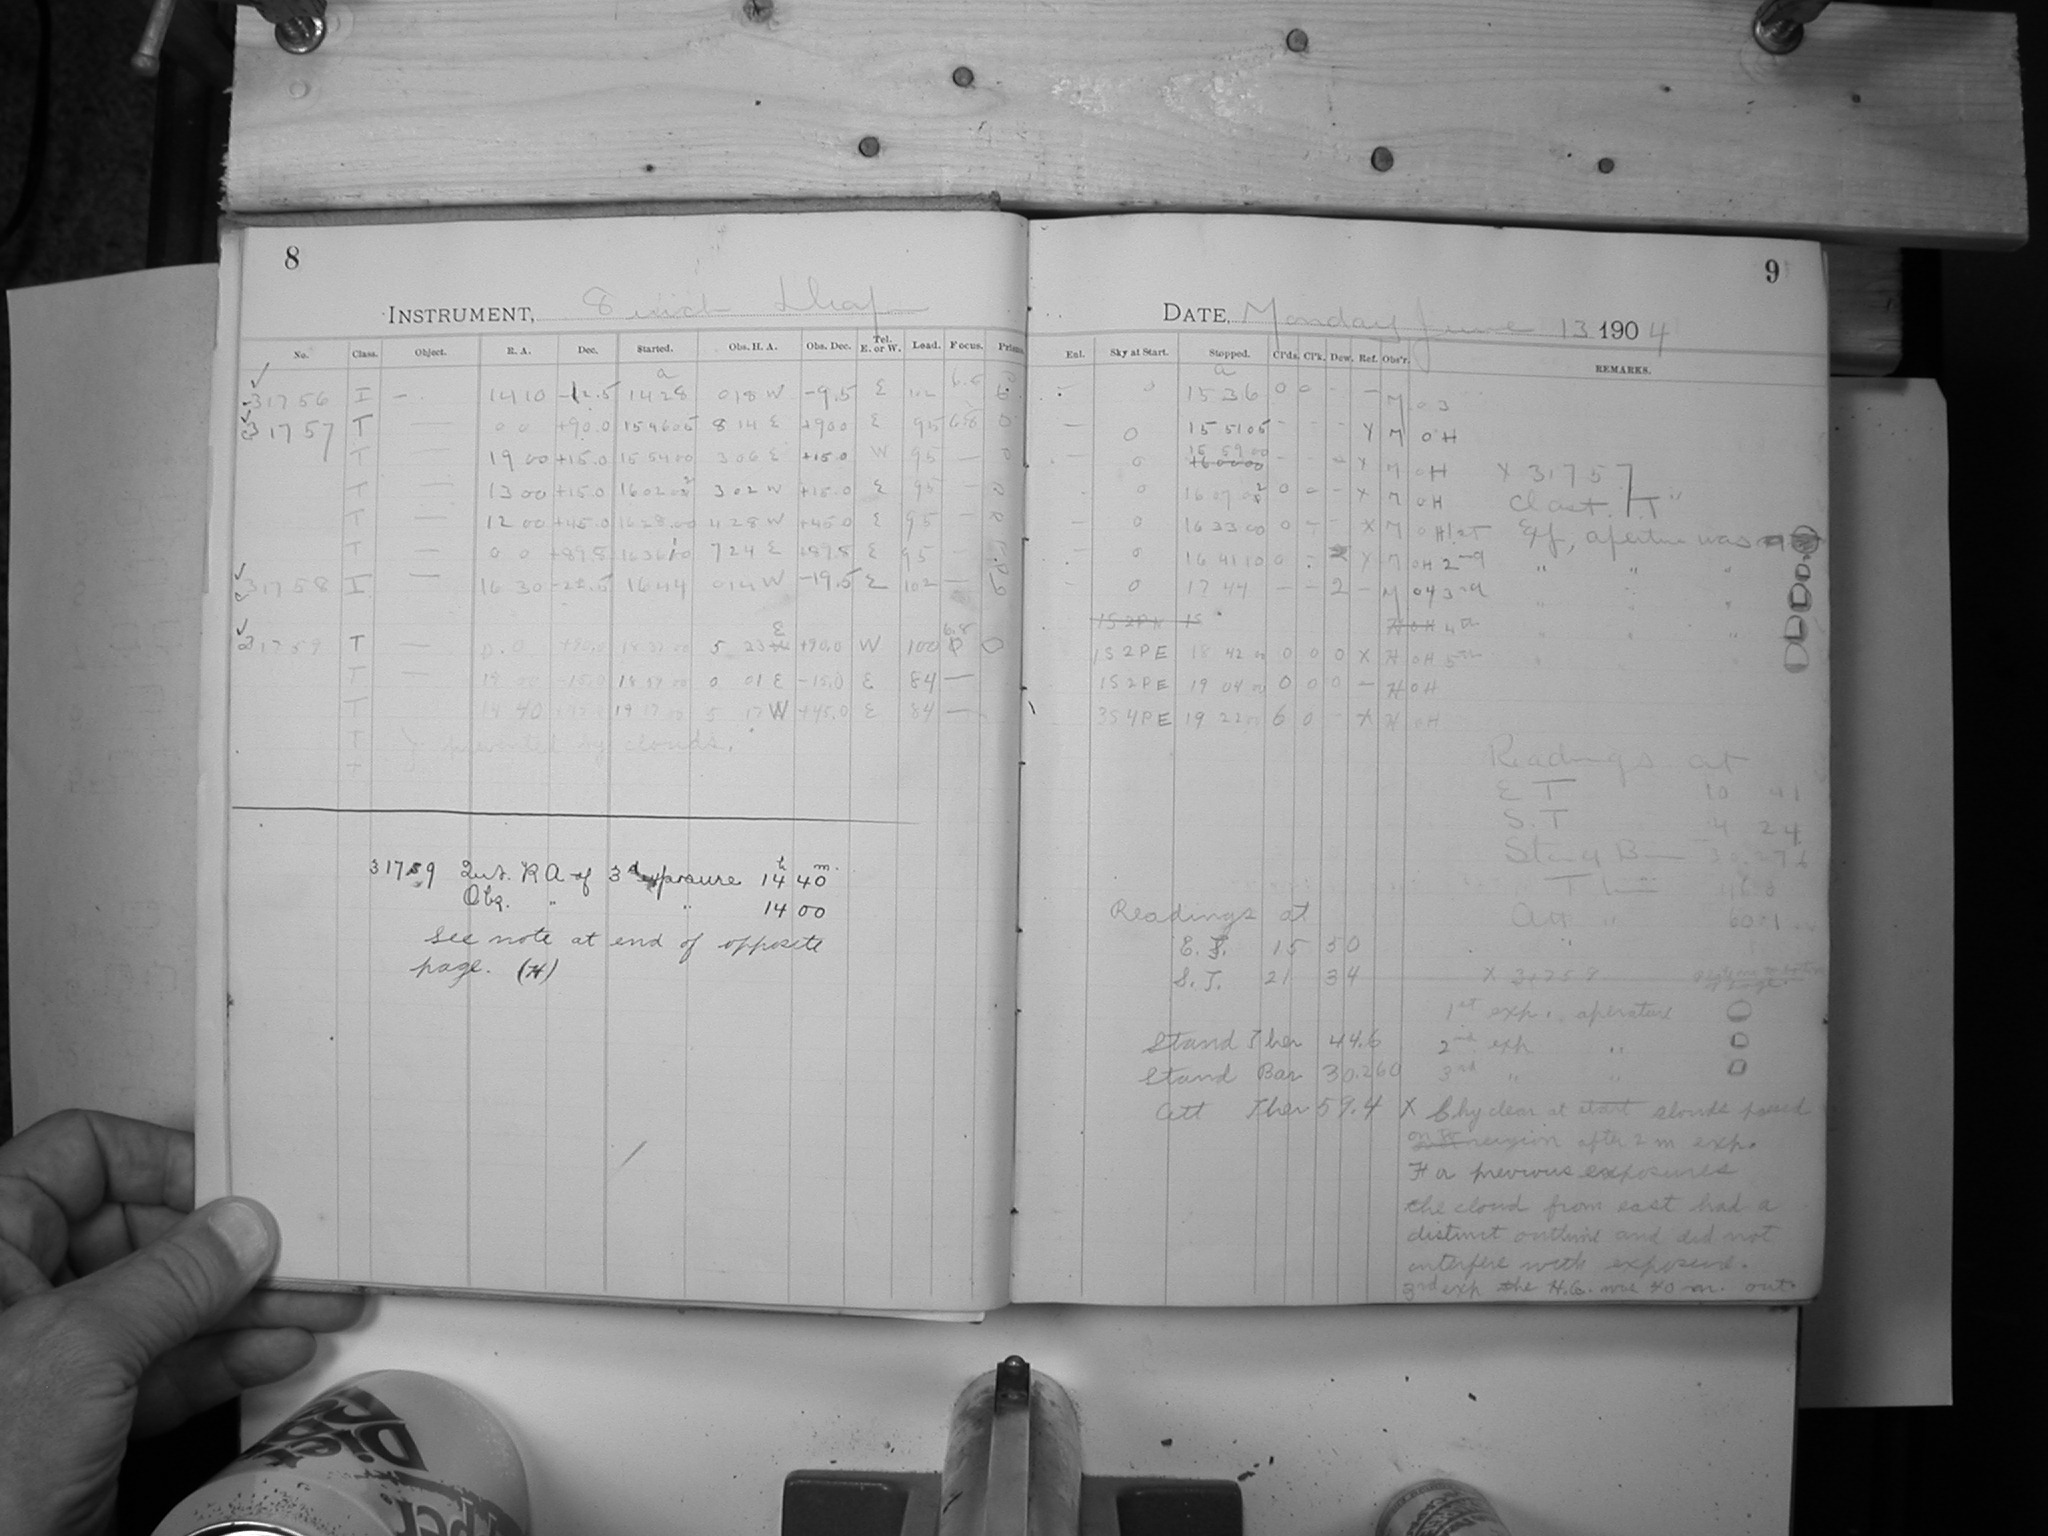 8
INSTRUMENT, 8 inch
No. Class. Object. R. A. Dec. Started. Obs. H. A. Obs. Dec. Tel. E. or W. Lead. Focus. Prism.
31756 I — 14 10 -12.5 14 28 0 18 W -9.5 E 102 6.6
31757 T — 0 0 +90.0 15 46 05 8 14 E +90.0 E 95 6.8
T — 19 00 +15.0 15 54 00 3 06 E +15.0 W 95 —
T — 13 00 +15.0 16 02 3 02 W +15.0 E 95 —
T — 12 00 +45.0 16 28 00 4 28 W +45.0 E 95 —
T — 0 0 +89.8 16 36 10 7 24 E +89.8 E 95 —
31758 I — 16 30 -22.5 16 44 0 14 W -19.5 E 102 —
31759 T — 0.0 +90.0 18 37 00 5 23 E +90.0 W 100 6.8
T — 19 00 -15.0 18 59 00 0 01 E -15.0 E 84 —
T 14 40 +45.0 19 17 00 5 17 W +45.0 E 84 —
T } prevented by clouds.
T
31759 Int. RA of 3d exposure 14h 40m.
Obs. " " 14 00
See note at end of opposite
page. (H)
9
DATE, Monday June 13 1904
Enl. Sky at Start. Stopped. Cl'ds. Cl'k. Dew. Ref. Obs'r. REMARKS.
0 15 36 0 0 - - M 03
— 0 15 51 05 - - - X M OH
— 0 15 59 00 - - - X M OH X 31757
0 16 07 0 0 - - X M OH Class. T
— 0 16 33 00 0 - - X M OH 1st Exp, aperture was
0 16 41 10 0 X M OH 2nd " " "
0 17 44 - - 2 - M 04 3rd " " "
1S2PE 15 H OH 4th " " "
1S2PE 18 42 00 0 0 0 X H OH 5th " " "
1S2PE 19 04 00 0 0 0 — H OH
3S4PE 19 22 00 6 0 - X H OH
Readings at
E T 10 41
S. T 4 24
Stand Bar
Att " 60.1
Readings at
E. T. 15 50
S. T. 21 34
X 31759
1st exp. aperature
Stand Ther 44.6 2nd exp "
Stand Bar 30.260 3rd " "
Att Ther 59.4 X Sky clear at start clouds passed
on to region after 2 m exp.
For previous exposures
the cloud from east had a
distinct outline and did not
interfere with exposure.
3rd exp the H.C. was 40 m. out